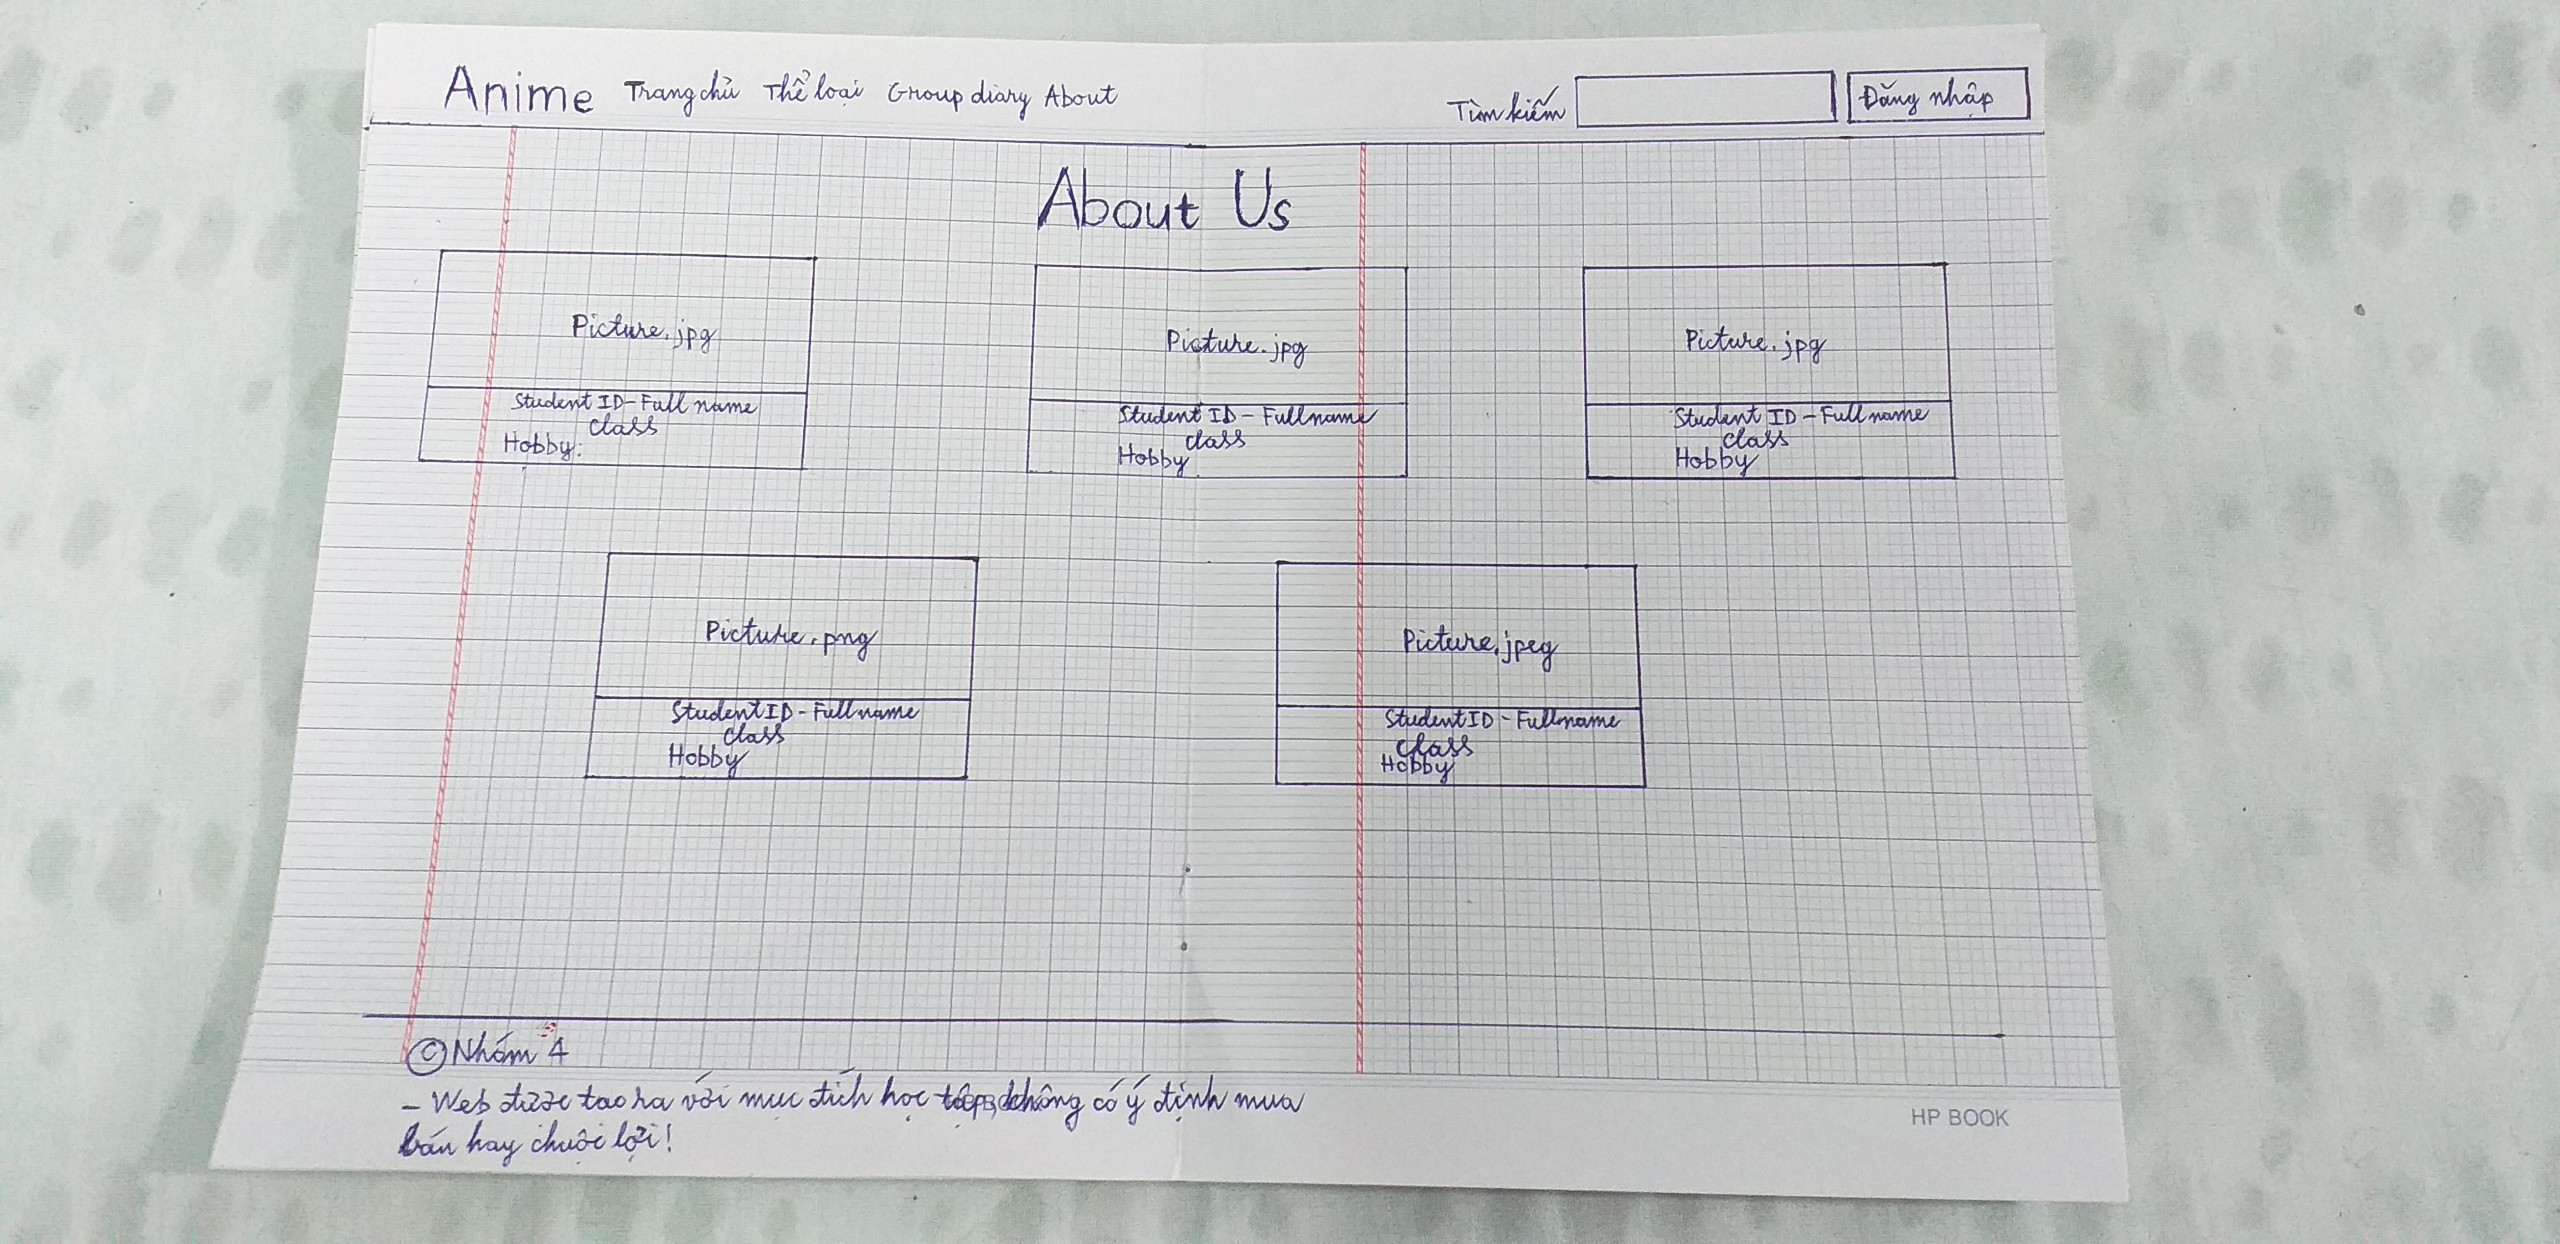 Anime Trang chủ Thể loại Group diary About Tìm kiếm Đăng nhập
About Us
Picture.jpg
Student ID - Full name
class
Hobby:
Picture.jpg
Student ID - Full name
class
Hobby
Picture.jpg
Student ID - Full name
class
Hobby
Picture.png
Student ID - Full name
class
Hobby
Picture.jpeg
Student ID - Full name
class
Hobby
© Nhóm 4
- Web được tạo ra với mục đích học tập, không có ý định mua
bán hay chuộc lợi!
HP BOOK